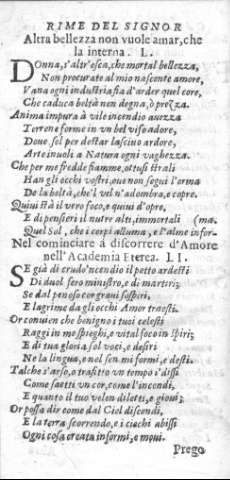 RIME DEL SIGNOR
Altra bellezza non vuole amar, che
la interna. L.
Donna, s'altr'esca, che mortal bellezza,
Non procurate al mio nascente amore,
Vana ogni industria fia d'arder quel core,
Che caduca beltà non degna, ò prezza.
Anima impura à vile incendio avezza
Terrene forme in un bel viso adore,
Dove sol per destar lascivo ardore,
Arte involi a Natura ogni vaghezza.
Che per me fredde fiamme, ottusi strali
Han gli occhi vostri, ove non segui l'orma
De la beltà, che'l vel n'adombra, e copre.
Quivi stà il vero foco, e quivi d'opre,
E di pensieri il nutre alti, immortali (ma.
Quel Sol, che i corpi alluma, e l'alme infor-
Nel cominciare à discorrere d'Amore
nell'Academia Eterea. LI.
Se già di crudo incendio il petto ardesti
Di duol fero ministro, e di martiri;
Se dal penoso cor gravi sospiri,
E lagrime da gli occhi Amor traesti.
Or con vien che benigno i tuoi celesti
Raggi in me spieghi, e vital foco in spiri;
E di tua gloria sol voci, e desiri
Ne la lingua, e nel sen mi formi, e desti.
Talche s'arso, e trafitto un tempo i' dissi
Come saetti un cor, come l'incendi,
E quanto il tuo velen diletti, e giovi;
Or possa dir come dal Ciel discendi,
E la terra scorrendo, e i ciechi abissi
Ogni cosa creata informi, e movi.
Prego